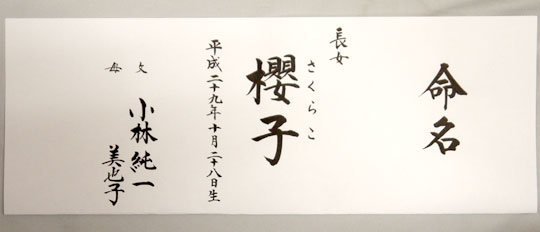 命名
長女
さくらこ
櫻子
平成二十九年十月二十八日生
父 小林純一
母 美也子